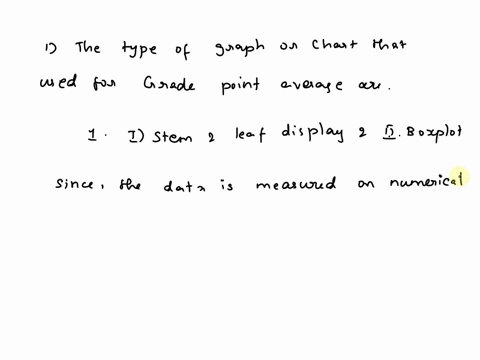 1) The type of graph or chart that
used for Grade point average are.
1. I) Stem & leaf display & II. Boxplot
Since, the data is measured on numerical